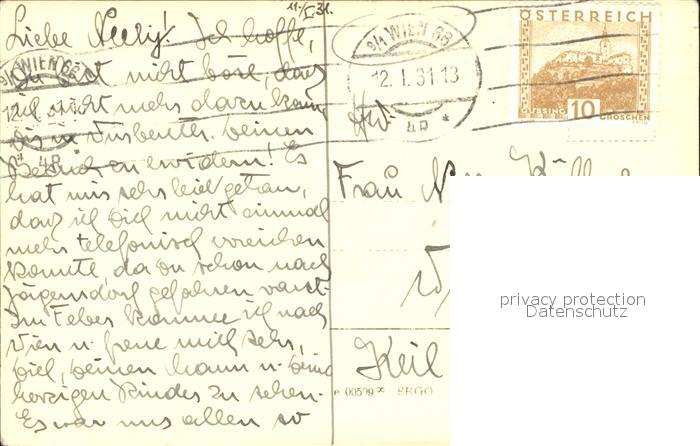 11. I. 31.
Liebe Nelly! Ich hoffe,
Du bist nicht böse, dass
ich nicht mehr dazu kam,
Deinen
Besuch zu erwidern! Es
hat mir sehr leid getan,
dass ich Dich nicht einmal
mehr telefonisch erreichen
konnte, da Du schon nach
Jägerndorf gefahren warst.
Im Feber komme ich nach
Wien u. freue mich sehr,
Dich, Deinen Mann u. Deine
herzigen Kinder zu sehen.
Es war uns allen so
9/1 WIEN 66
12. I. 31. 13
* 4P *
9/1 WIEN 66
12. I. 31. 13
* 4P *
ÖSTERREICH
GÜSSING 10 GROSCHEN
Frau
Keil
ERGO
privacy protection
Datenschutz